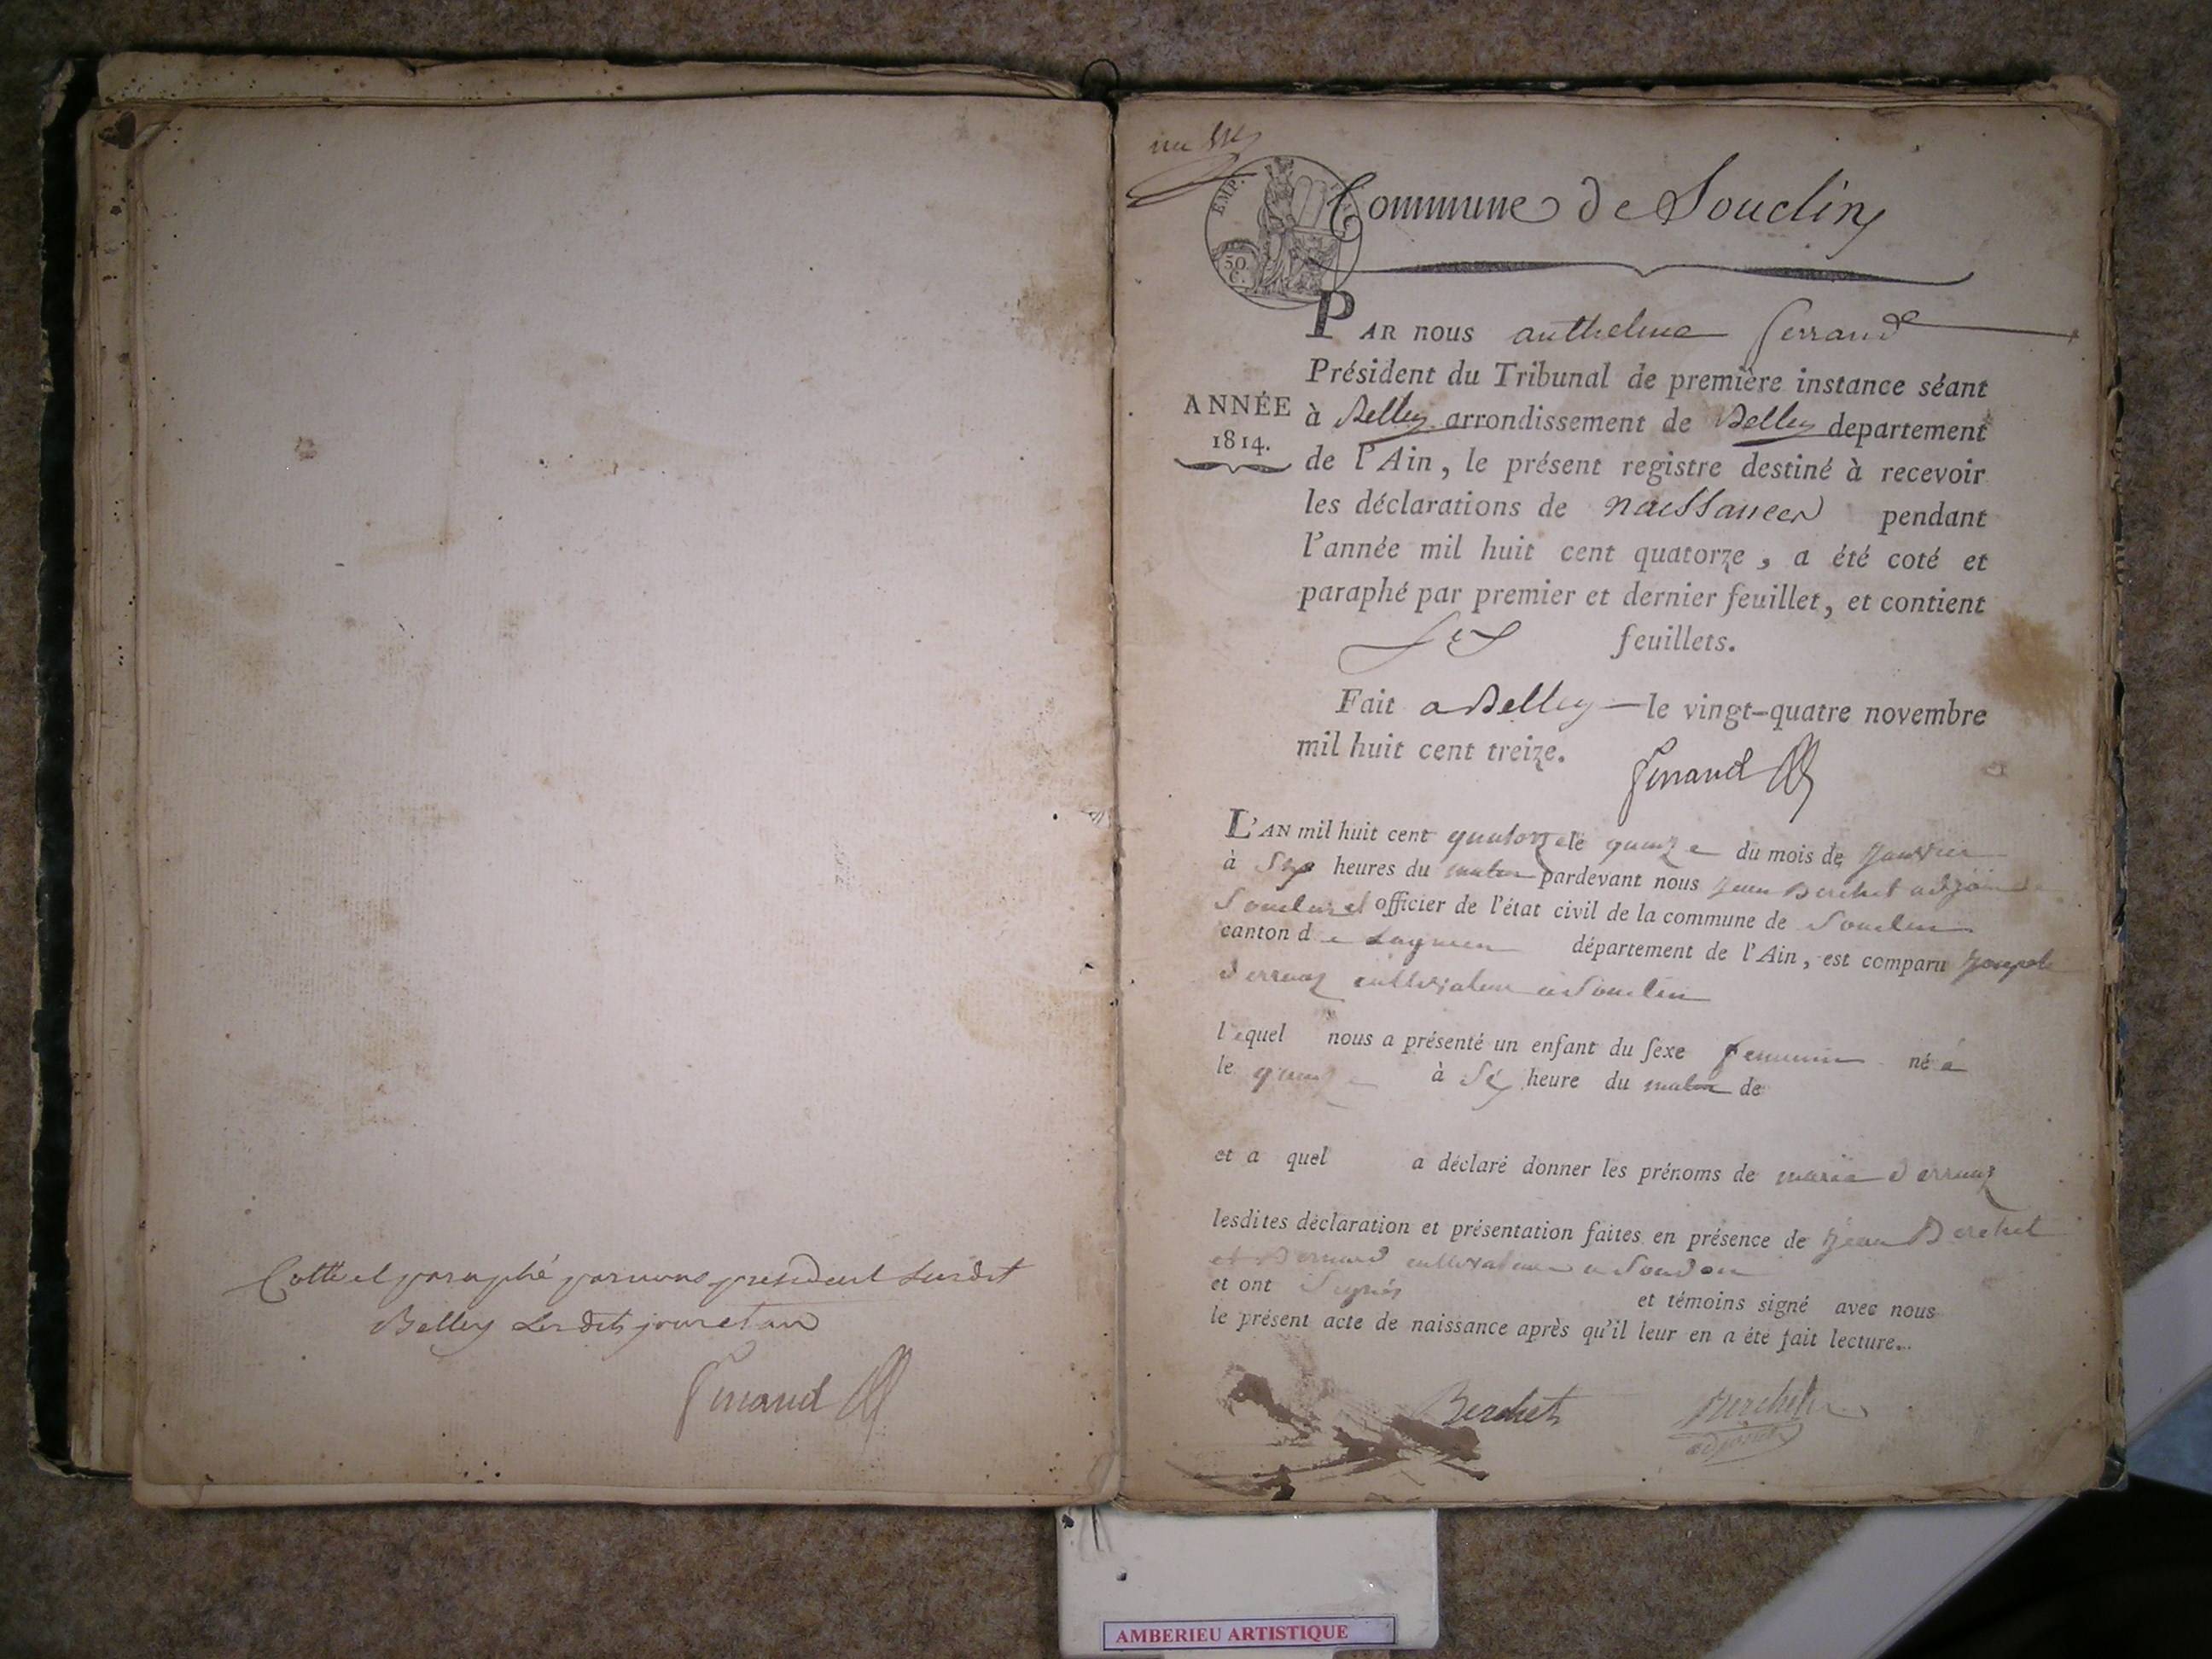 Cotté et paraphé par nous president susdit
Belley Les dits jour et an
Ferrand
EMP.
50.
C.
Commune de Souclin
PAR nous anthelme ferrand
Président du Tribunal de première instance séant
ANNÉE
1814.
à Belley arrondissement de Belley departement
de l'Ain, le présent registre destiné à recevoir
les déclarations de naissances pendant
l'année mil huit cent quatorze, a été coté et
paraphé par premier et dernier feuillet, et contient
feuillets.
Fait a Belley le vingt-quatre novembre
mil huit cent treize.
Ferrand
L'AN mil huit cent quatorze le quinze du mois de Janvier
à six heures du matin pardevant nous Jean Berchet adjoint de
Souclin et officier de l'état civil de la commune de Souclin
canton de Lagnieu département de l'Ain, est comparu Joseph
derruaz cultivateur a Souclin
lequel nous a présenté un enfant du sexe feminin né e
le quinze à six heure du matin de
et a quel a déclaré donner les prénoms de marie derruaz
lesdites déclaration et présentation faites en présence de Jean Berchet
et Bernard cultivateur a
et ont signés et témoins signé avec nous
le présent acte de naissance après qu'il leur en a été fait lecture.
Berchet Berchet
adjoint
AMBERIEU ARTISTIQUE